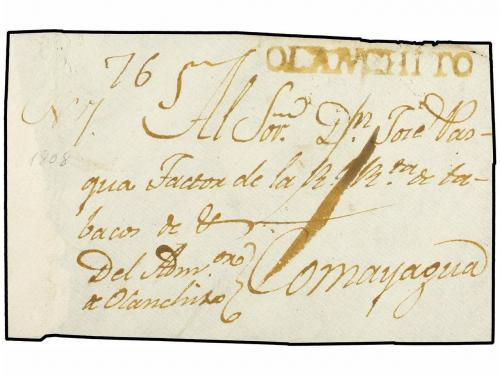 OLANCHITO
76
N 7. Al Sor. Dn. José Pas-
1808
qua Factor de la Rl. Rta. de ta-
bacos de &
Del Admor.
de Olanchito
Comayagua